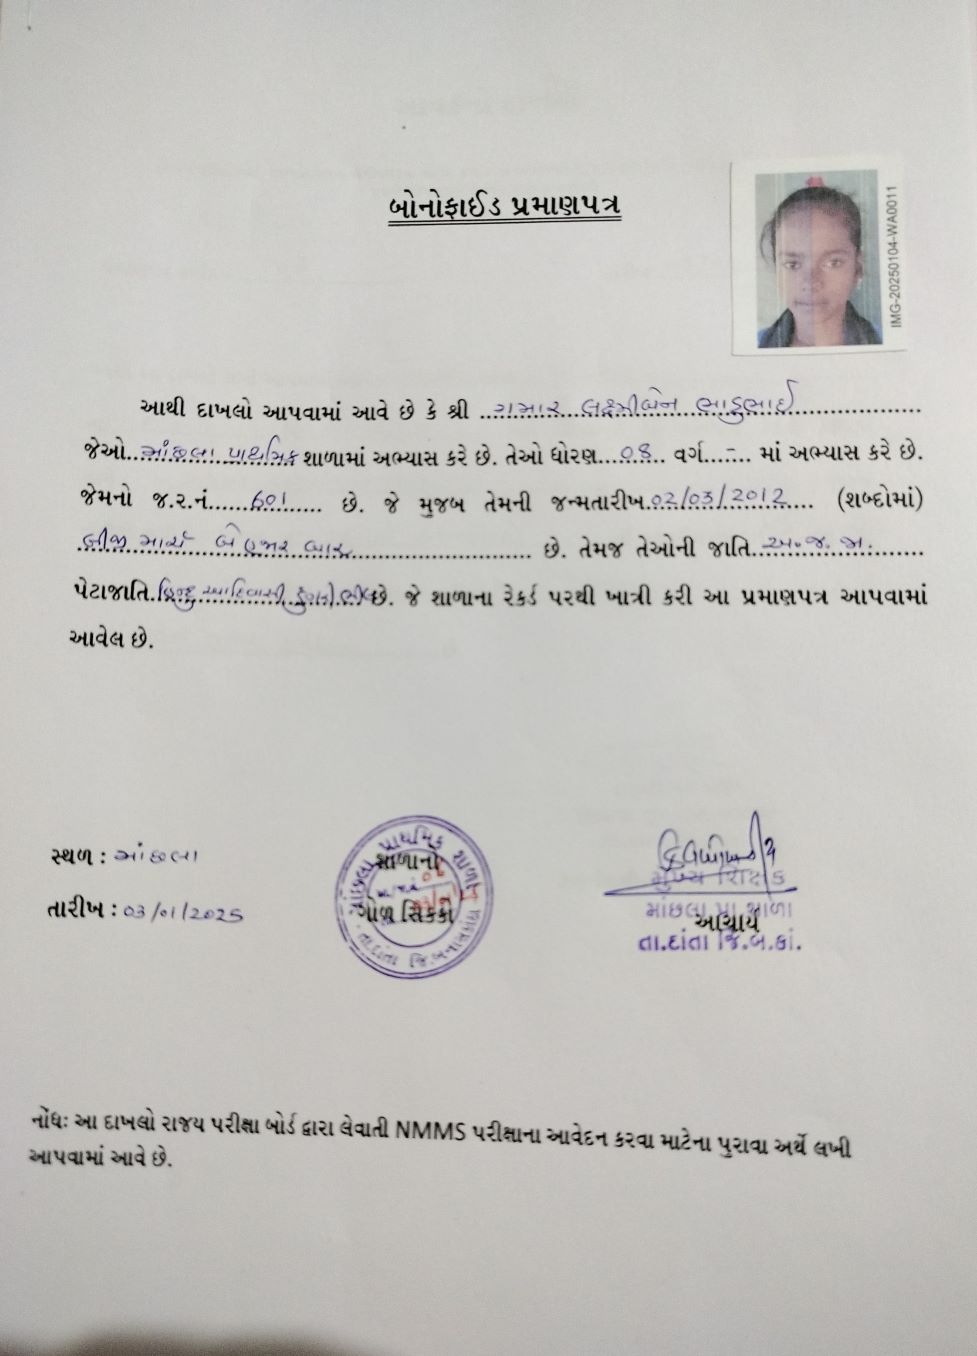 બોનોફાઈડ પ્રમાણપત્ર
IMG-20250104-WA0011
આથી દાખલો આપવામાં આવે છે કે શ્રી ગમાર લક્ષ્મીબેન ભાડુભાઈ
જેઓ માંછલા પ્રાથમિક શાળામાં અભ્યાસ કરે છે. તેઓ ધોરણ 08 વર્ગ - માં અભ્યાસ કરે છે.
જેમનો જ.ર.નં. 601 છે. જે મુજબ તેમની જન્મતારીખ 02/03/2012 (શબ્દોમાં)
બીજી માર્ચ બે હજાર બાર છે. તેમજ તેઓની જાતિ અ.જ.જા.
પેટાજાતિ હિન્દુ આદિવાસી ડુંગરી ભીલ છે. જે શાળાના રેકર્ડ પરથી ખાત્રી કરી આ પ્રમાણપત્ર આપવામાં
આવેલ છે.
સ્થળ : માંછલા
તારીખ : 03/01/2025
માંછલા પ્રાથમિક શાળા
શાળાનો
ગોળ સિક્કો
તા.દાંતા જિ.બનાસકાંઠા
મુખ્ય શિક્ષક
માંછલા પ્રા.શાળા
આચાર્ય
તા.દાંતા જિ.બ.કાં.
નોંધઃ આ દાખલો રાજય પરીક્ષા બોર્ડ દ્વારા લેવાતી NMMS પરીક્ષાના આવેદન કરવા માટેના પુરાવા અર્થે લખી
આપવામાં આવે છે.